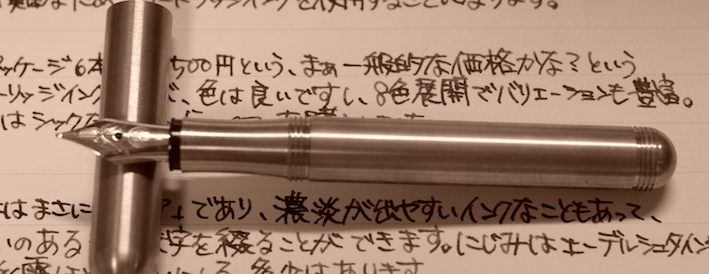 使用することにあります。
ッケージ6本 500円という、まぁ一般的な価格かな?という
ーリッジインク 、色は良いですし、8色展開でバリエーションも豊富。
はシック
はまさに 」であり、濃淡が出やすいインクなこともあって、
いのある 文字を綴ることができます。にじみはエーデルシュタイン
多少はあります